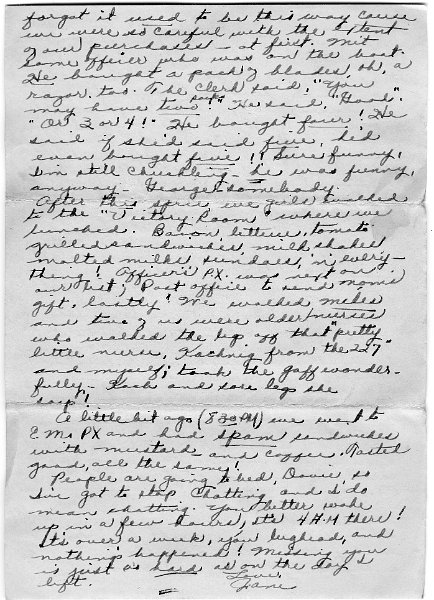 forgot it used to be this way cause
we were so careful with the extent
of our purchases - at first. Met
some officer who was on the boat.
He bought a pack of blades, oh, a
razor, too. The clerk said, "You
may have two packs" He said, "Good".
"Or 3 or 4!" He bought four! He
said if she'd said five, he'd
even bought five!! Sure funny,
I'm still chuckling - he was funny,
anyway. George somebody.
After this spree we girls walked
to the "Victory Room" where we
lunched. Bacon, lettuce, tomato
grilled sandwiches, milk shakes
malted milks, sundaes, 'n everything!
Officer's PX. was next on
our list; Post office to send Mom's
gift, lastly! We walked miles
and two of us were older nurses
who walked the legs off that "pretty
little nurse, Kachnig from the 227"
and myself; took the gaff wonderfully -
Kach and sore legs she
says!
A little bit ago (8:30 PM) we went to
E.M.s PX and had spam sandwiches
with mustard and coffee. Tasted
good, all the same!
People are going to bed, Davie, so
I've got to stop chatting and I do
mean chatting. You better wake
up in a few hours, it's 4 A.M there!
It's over a week, you lughead, and
nothing happened! Missing you
is just as hard as on the day I
left. Love,
Jane